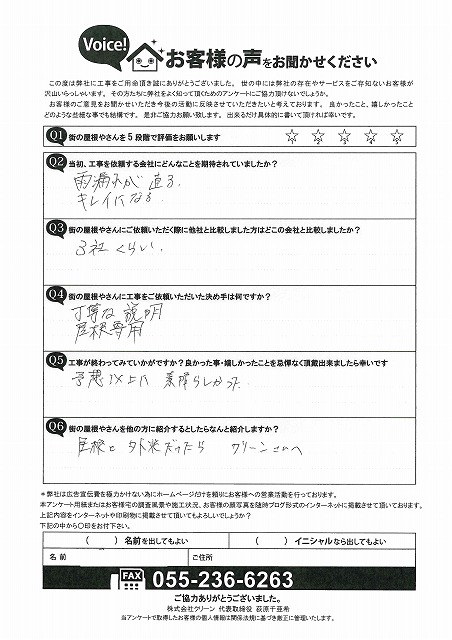 Voice!
お客様の声をお聞かせください
この度は弊社に工事をご用命頂き誠にありがとうございました。世の中には弊社の存在やサービスをご存知ないお客様が
沢山いらっしゃいます。その方たちに弊社をよく知って頂くためのアンケートにご協力頂けないでしょうか。
お客様のご意見をお聞かせいただき今後の活動に反映させていただきたいと考えております。良かったこと、嬉しかったこと
どのような些細な事でも結構です。是非ご協力お願い致します。出来るだけ具体的に書いて頂ければ幸いです。
Q1 街の屋根やさんを5段階で評価をお願いします ☆ ☆ ☆ ☆ ☆
Q2 当初、工事を依頼する会社にどんなことを期待されていましたか?
雨漏れが直る、
キレイになる、
Q3 街の屋根やさんにご依頼いただく際に他社と比較しました方はどこの会社と比較しましたか?
3社くらい、
Q4 街の屋根やさんに工事をご依頼いただいた決め手は何ですか?
丁寧な説明
屋根専用
Q5 工事が終わってみていかがですか?良かった事・嬉しかったことを忌憚なく頂戴出来ましたら幸いです
予想以上に素晴らしかった
Q6 街の屋根やさんを他の方に紹介するとしたらなんと紹介しますか?
屋根と外装だったら クリーンさんへ
＊弊社は広告宣伝費を極力かけない為にホームページだけを頼りにお客様への営業活動を行っております。
本アンケート用紙またはお客様宅の調査風景や施工状況、お客様の顔写真を随時ブログ形式のインターネットに掲載させて頂いております。
上記内容をインターネットや印刷物に掲載させて頂いてもよろしいでしょうか?
下記の中から〇印をお付下さい。
( )名前を出してもよい ( )イニシャルなら出してもよい
名前 ご住所
FAX 055-236-6263
ご協力ありがとうございました。
株式会社クリーン 代表取締役 萩原千亜希
当アンケートで取得したお客様の個人情報は関係法規に基づき厳正に管理いたします。